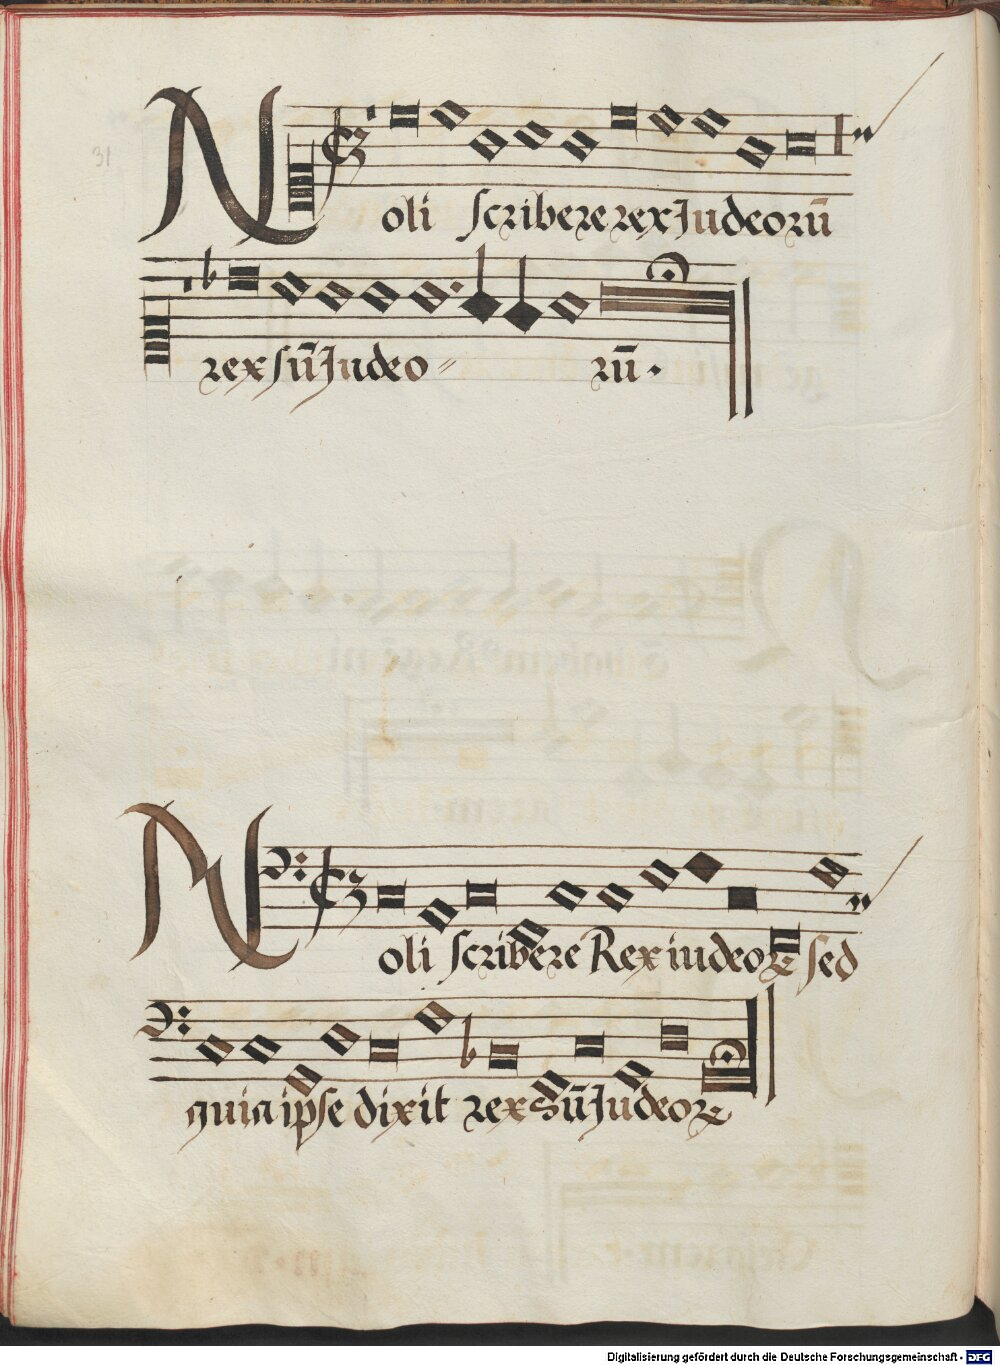 31
Noli scribere rex Judeorū
rex sū Judeo= rū.
Noli scribere Rex iudeoꝝ sed
quia ipse dixit rex sū Judeoꝝ
Digitalisierung gefördert durch die Deutsche Forschungsgemeinschaft - DFG